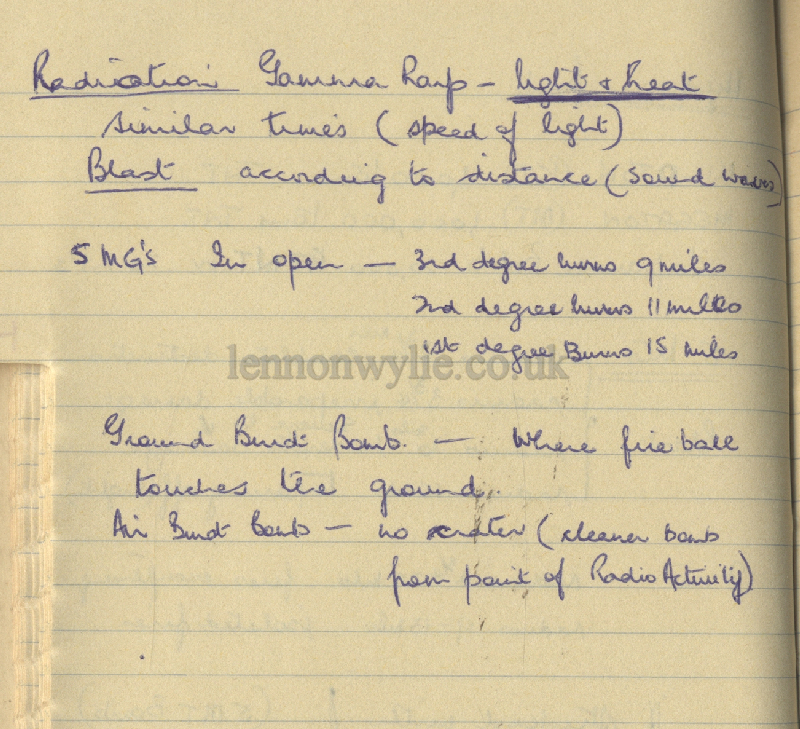 Radiation Gamma Rays - light & heat
similar times (speed of light)
Blast according to distance (Sound waves)
5 MG's In open — 3rd degree burns 9 miles
2nd degree burns 11 miles
1st degree Burns 15 miles
lennonwylie.co.uk
Ground Burst Bomb. — Where fire ball
touches the ground.
Air Burst Bomb — no crater (cleaner bomb
from point of Radio Activity)